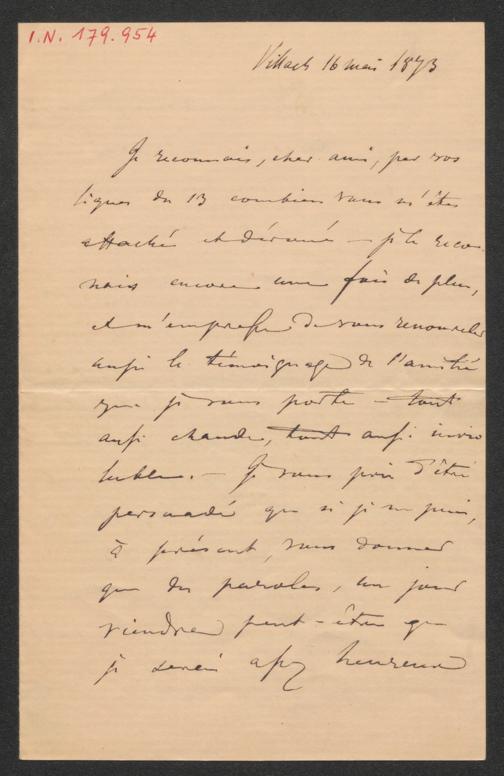 I.N. 179.954
Villach 16 mai 1873
Je reconnais, cher ami, par vos
lignes du 13 combien vous m'êtes
attaché et dévoué – je le recon-
nais encore une fois de plus,
et m'empresse de vous renouveler
aussi le témoignage de l'amitié
que je vous porte – tout
aussi chaude, tout aussi invio
lable. – Je vous prie d'être
persuadé que si je ne puis,
à présent, vous donner
que des paroles, un jour
viendra peut-être que
je serai assez heureux